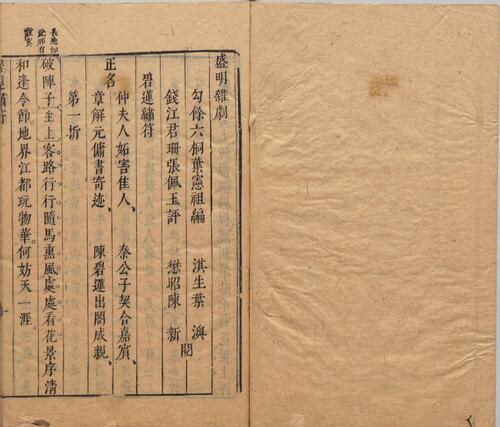 盛明雜劇
勾餘六桐葉憲祖編 淇生葉 澳
錢江君珊張佩玉評 懋昭陳 新 閱
碧蓮繡符
正名
仲夫人妬害佳人、 秦公子契合嘉賓、
章解元傭書寄迹、 陳碧蓮出閤成親、
第一折
破陣子㘴上客路行行隨馬熏風處處看花景序清
和逢令節地界江都玩物華何妨天一涯